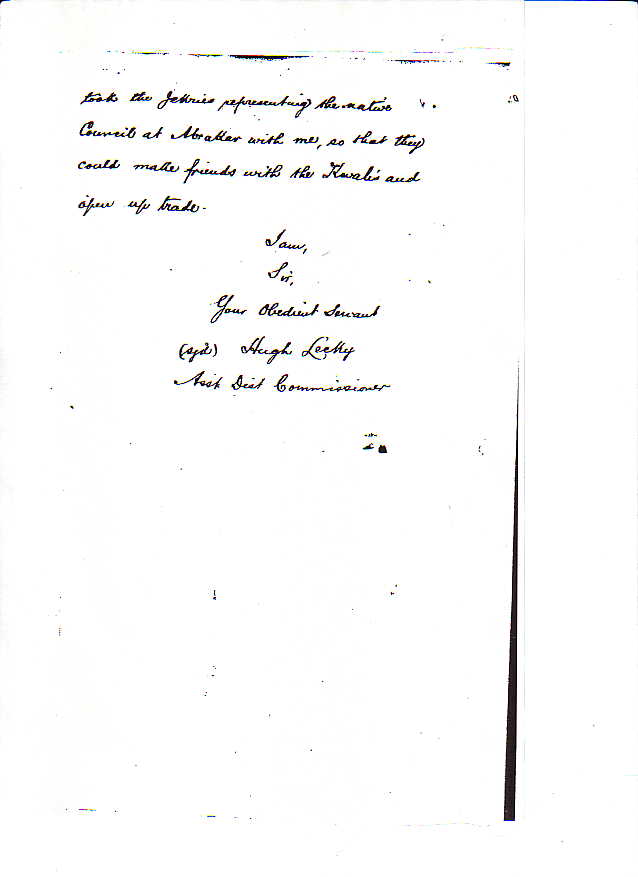 took the Jekries representing the native
Council at Abrakar with me, so that they
could make friends with the Kwales and
open up trade.
I am,
Sir,
Your Obedient Servant
(sgd) Hugh Lecky
Asst Dist Commissioner